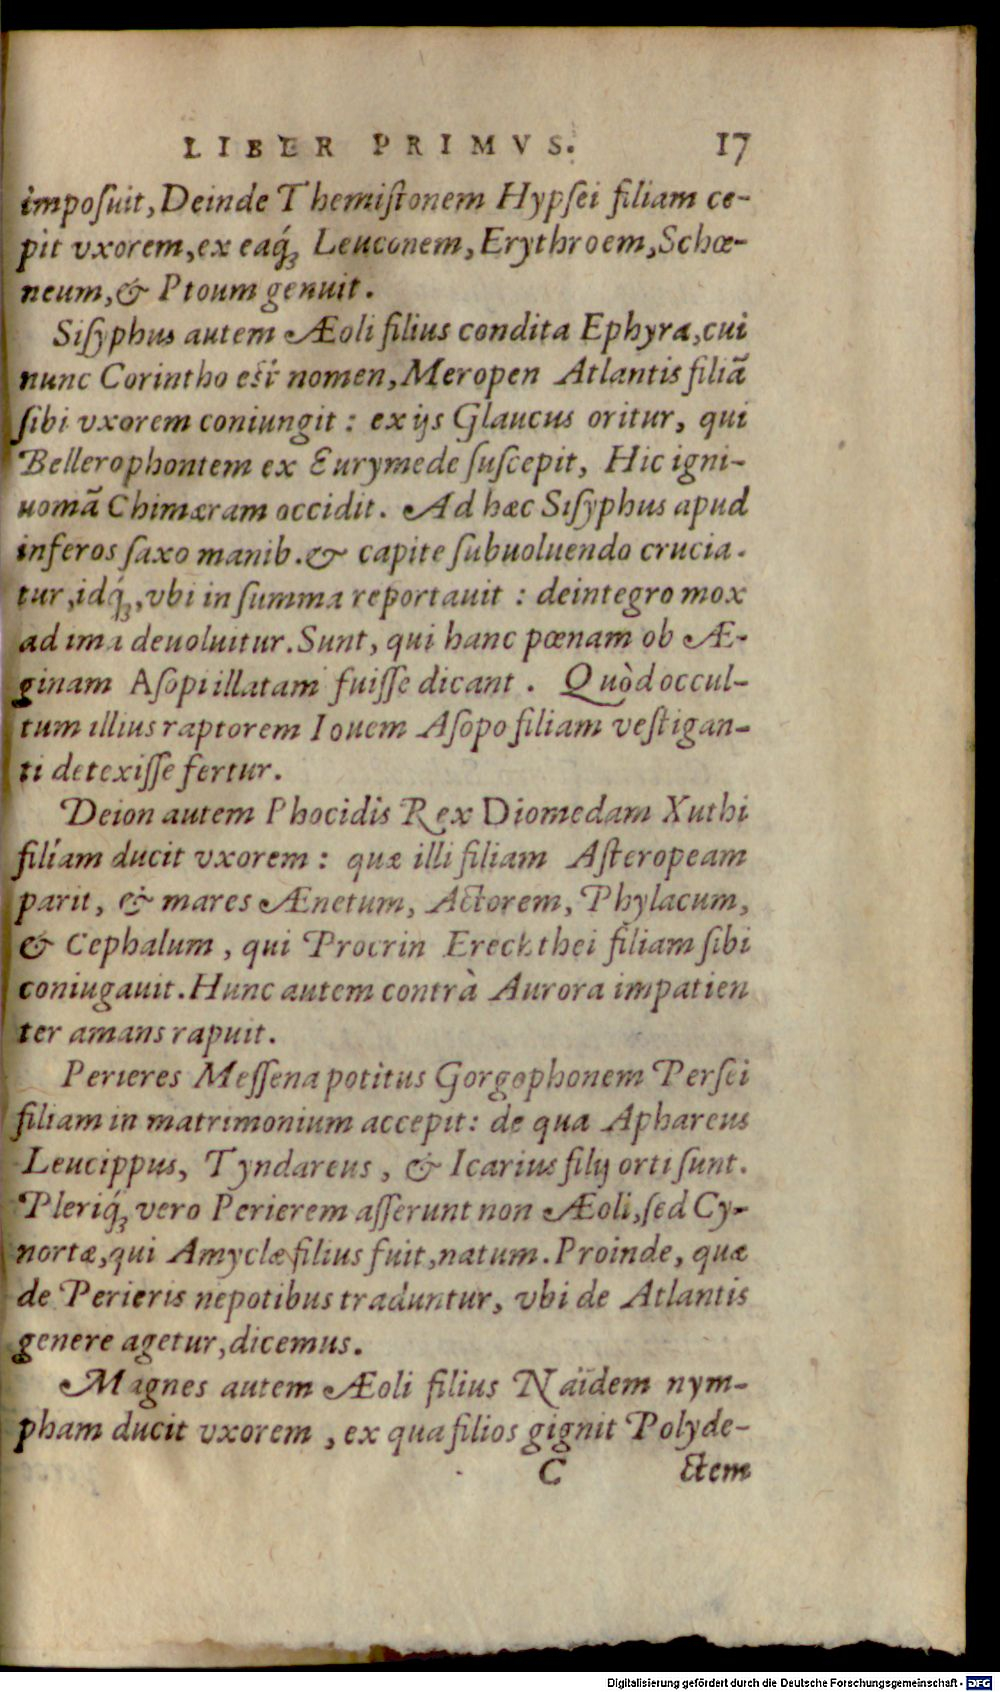 LIBER PRIMVS. 17
imposuit, Deinde Themistonem Hypsei filiam ce-
pit vxorem, ex eaq́ꝫ Leuconem, Erythroem, Schœ-
neum, & Ptoum genuit.
Sisyphus autem Æoli filius condita Ephyra, cui
nunc Corintho est nomen, Meropen Atlantis filiā
sibi vxorem coniungit : ex ijs Glaucus oritur, qui
Bellerophontem ex Eurymede suscepit, Hic igni-
uomā Chimæram occidit. Ad hæc Sisyphus apud
inferos saxo manib. & capite subuoluendo crucia-
tur, idq́ꝫ, vbi in summa reportauit : deintegro mox
ad ima deuoluitur. Sunt, qui hanc pœnam ob Æ-
ginam Asopi illatam fuisse dicant . Quòd occul-
tum illius raptorem Iouem Asopo filiam vestigan-
ti detexisse fertur.
Deion autem Phocidis Rex Diomedam Xuthi
filiam ducit vxorem : quæ illi filiam Asteropeam
parit, & mares Ænetum, Actorem, Phylacum,
& Cephalum , qui Procrin Erechthei filiam sibi
coniugauit. Hunc autem contrà Aurora impatien
ter amans rapuit.
Perieres Messena potitus Gorgophonem Persei
filiam in matrimonium accepit: de qua Aphareus
Leucippus, Tyndareus , & Icarius filij orti sunt.
Pleriq́ꝫ vero Perierem asserunt non Æoli, sed Cy-
nortæ, qui Amyclæ filius fuit, natum. Proinde, quæ
de Perieris nepotibus traduntur, vbi de Atlantis
genere agetur, dicemus.
Magnes autem Æoli filius Naïdem nym-
pham ducit vxorem , ex qua filios gignit Polyde-
C ctem
Digitalisierung gefördert durch die Deutsche Forschungsgemeinschaft - DFG